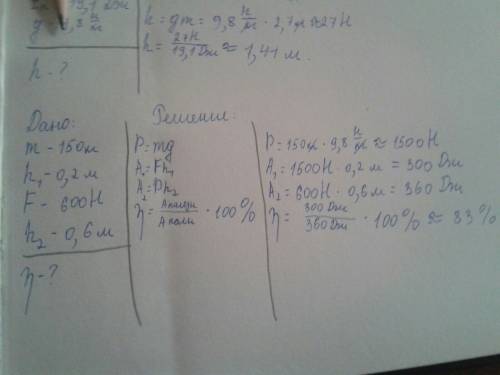 19,1 Дж
g 9,8 Н/м
h - ?
h = gm = 9,8 Н/м · 2,7 ≈ 27Н
h = 27Н/19,1Дж ≈ 1,41 м.
Дано:
m - 150м
h₁ - 0,2 м
F - 600Н
h₂ - 0,6 м
η - ?
Решение:
P = mg
A₁ = Fh₁
A₂ = Ph₂
η = Аполезн/Аполн · 100%
P = 150 · 9,8 Н/кг ≈ 1500Н
A₁ = 1500Н · 0,2 м = 300 Дж
A₂ = 600Н · 0,6м = 360 Дж
η = 300 Дж/360 Дж · 100% ≈ 83%